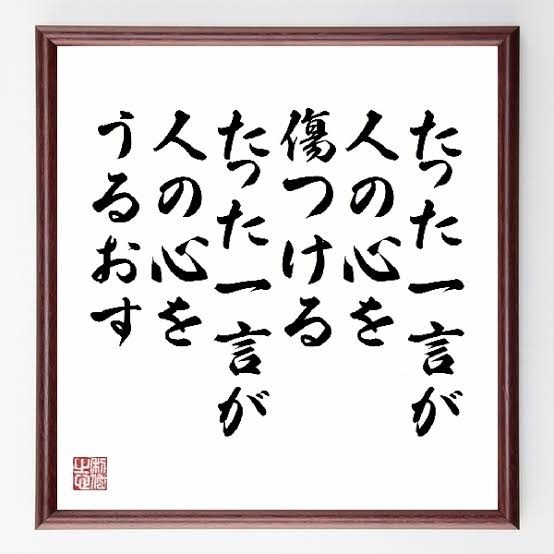 たった一言が
人の心を
傷つける
たった一言が
人の心を
うるおす